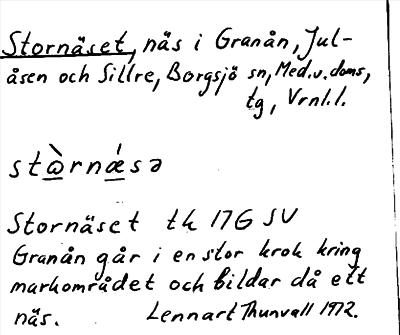 Stornäset, näs i Granån, Jul-
åsen och Sillre, Borgsjö sn, Med.v. doms,
tg, Vrnl.l.
stòrnǽsə
Stornäset tk 17G SV
Granån går i en stor krok kring
markområdet och bildar då ett
näs. Lennart Thunvall 1972.